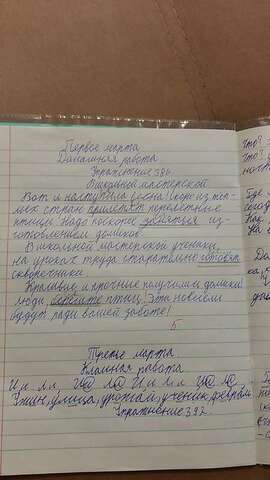 Первое марта
Домашняя работа
Упражнение 386
В школьной мастерской
Вот и наступила весна. Скоро из теп-
лых стран прилетят перелётные
птицы. Надо поскорее заняться из-
готовлением домиков.
В школьной мастерской ученики
на уроках труда старательно готовят
скворечники.
Красивые и прочные получились домики!
Люди, берегите птиц! Эти новосёлы
будут рады вашей заботе!
5
Третье марта
Классная работа
Ужин, улица, урожай, ученик, февраль
Упражнение 392.
Что?
Что?
Где